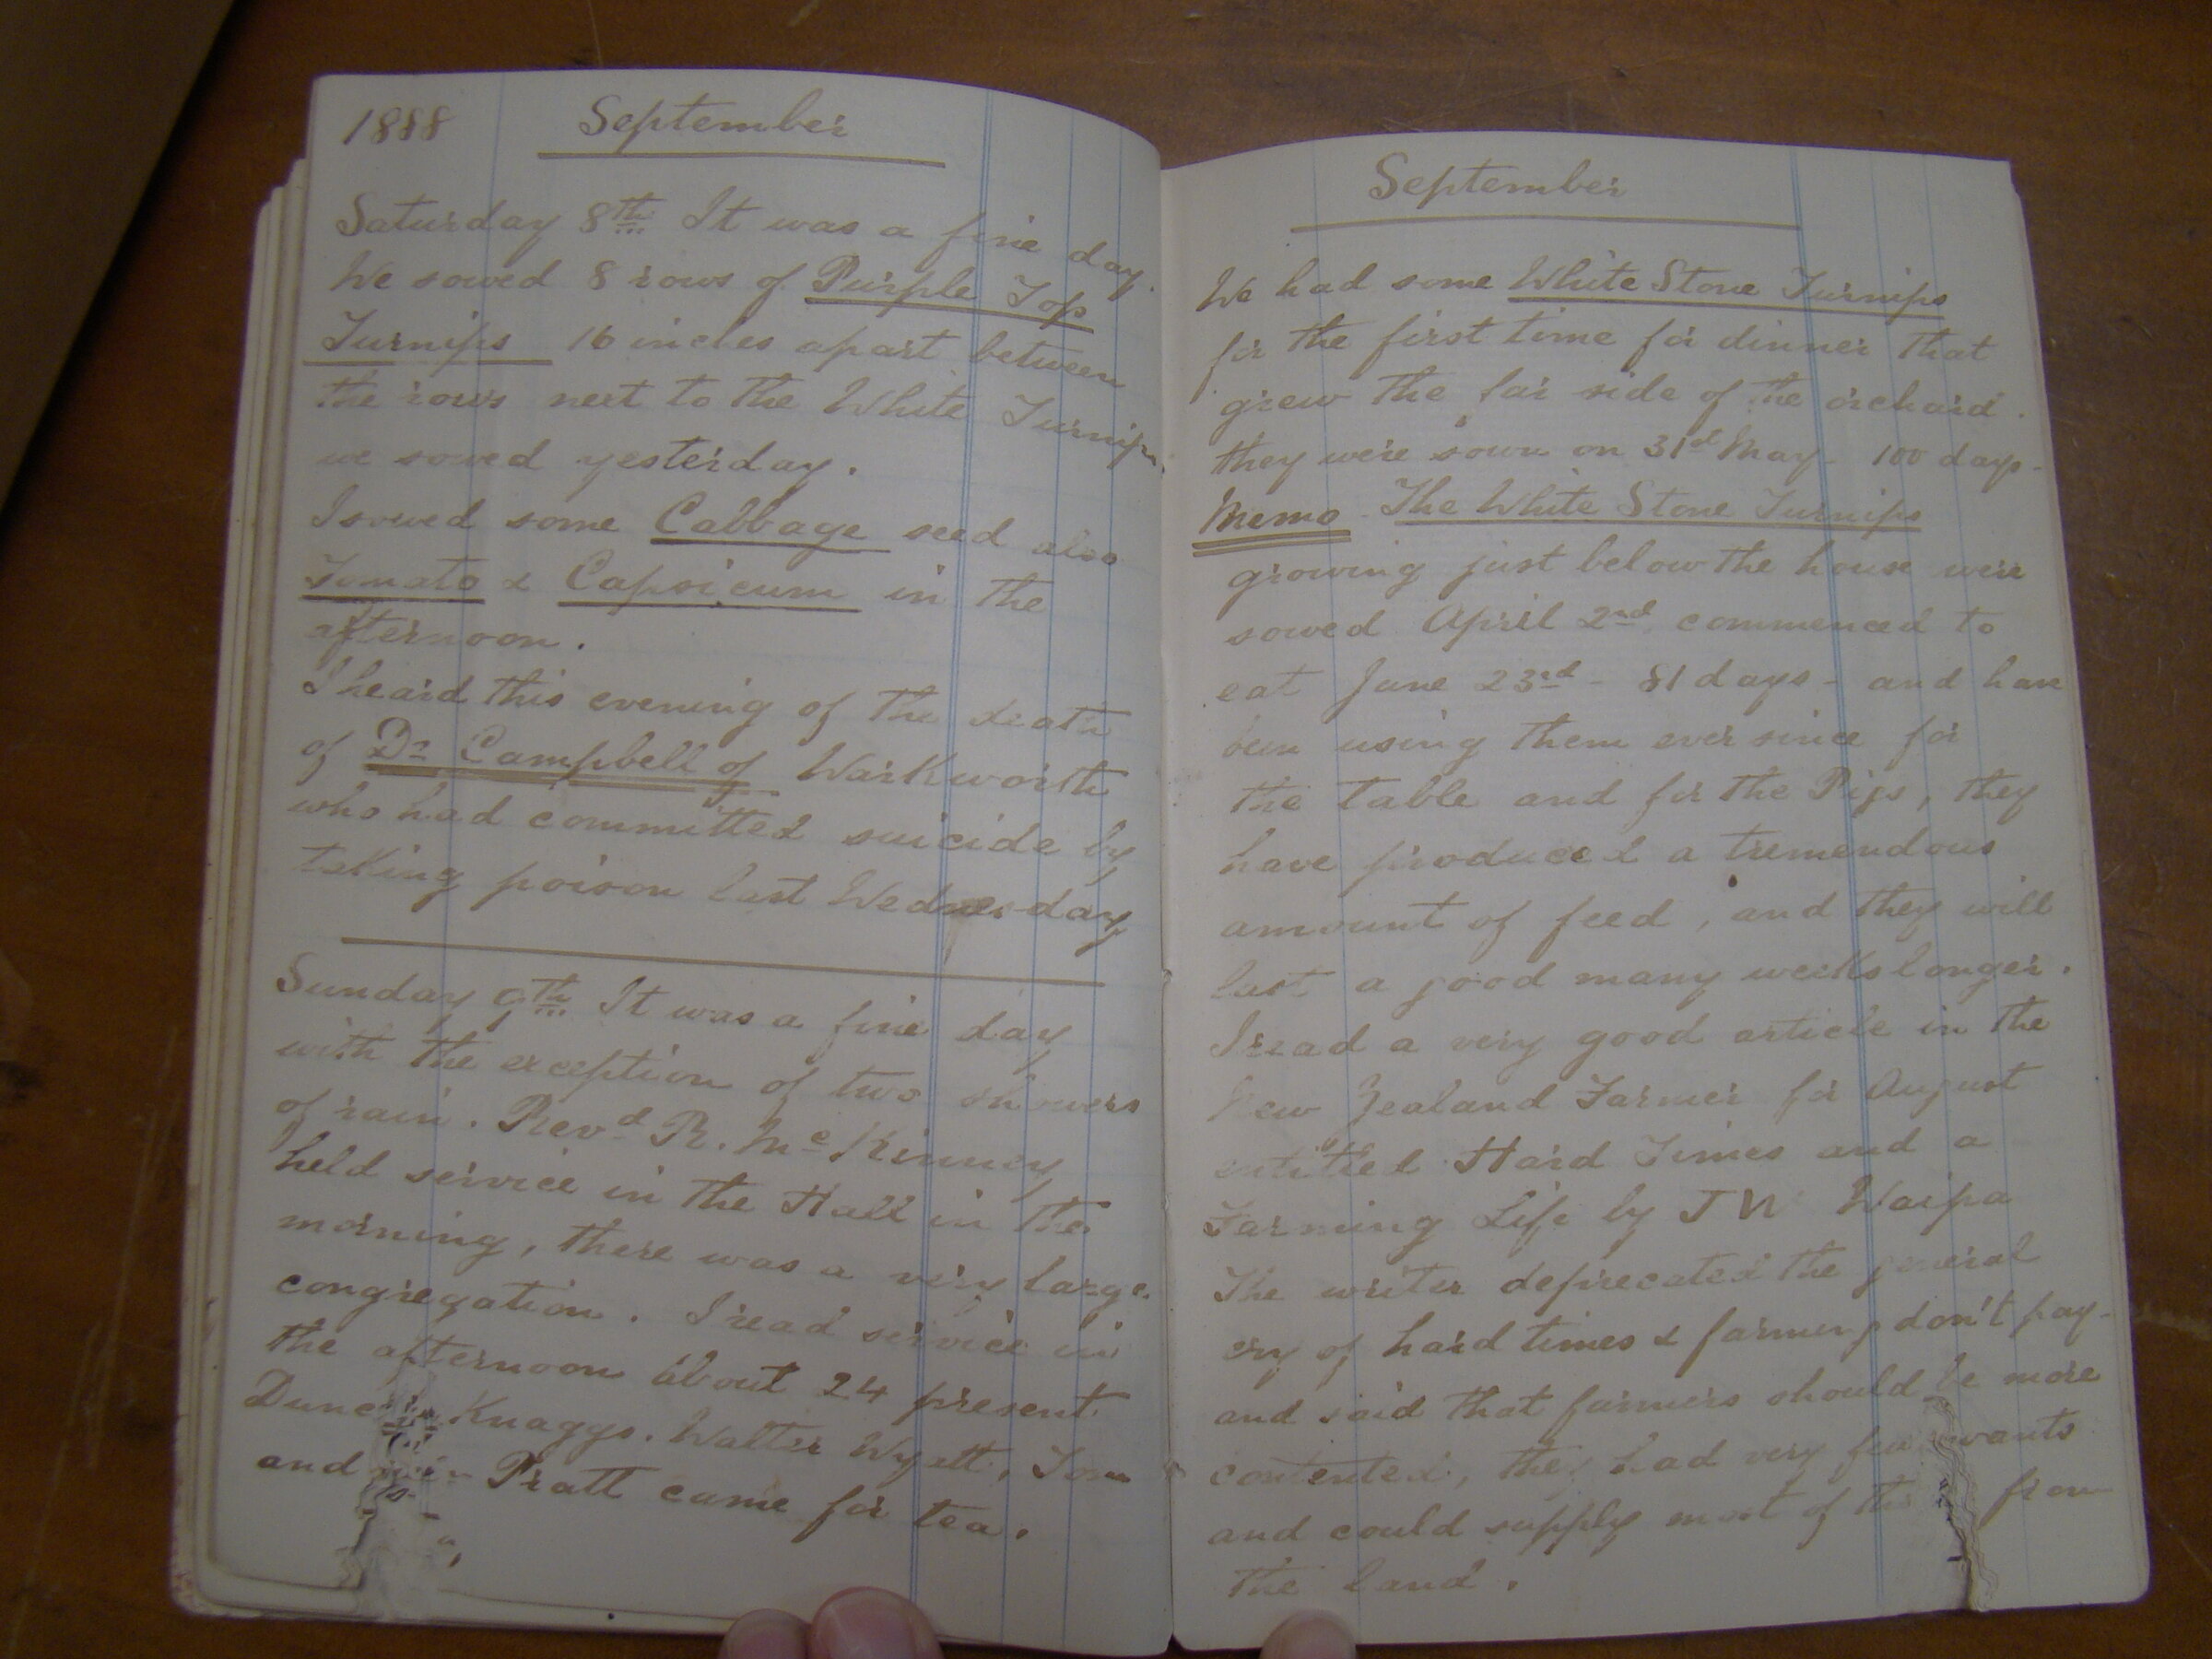 1888 September
Saturday 8th It was a fine day.
We sowed 8 rows of Purple Top
Turnips 16 inches apart between
the rows next to the White Turnips
we sowed yesterday.
I sowed some Cabbage seed also
Tomato & Capsicum in the
afternoon.
I heard this evening of the death
of Dr Campbell of Warkworth
who had committed suicide by
taking poison last Wednesday
Sunday 9th It was a fine day
with the exception of two showers
of rain. Revd R. McKinney
held service in the Hall in the
morning, there was a very large
congregation. I read service in
the afternoon about 24 present.
Knaggs. Walter Wyatt, Tom
and Pratt came for tea.
September
We had some White Stone Turnips
for the first time for dinner that
grew the far side of the orchard.
they were sown on 31st May - 100 days -
Memo - The White Stone Turnips
growing just below the house were
sowed April 2nd commenced to
eat June 23rd - 81 days - and have
been using them ever since for
the table and for the Pigs, they
have produced a tremendous
amount of feed, and they will
last a good many weeks longer.
I read a very good article in the
New Zealand Farmer for August
entitled Hard Times and a
Farming Life by J W Waipa
The writer deprecated the general
cry of hard times & farming don't pay -
and said that farmers should be more
contented, they had very few wants
and could supply most of from
the land.